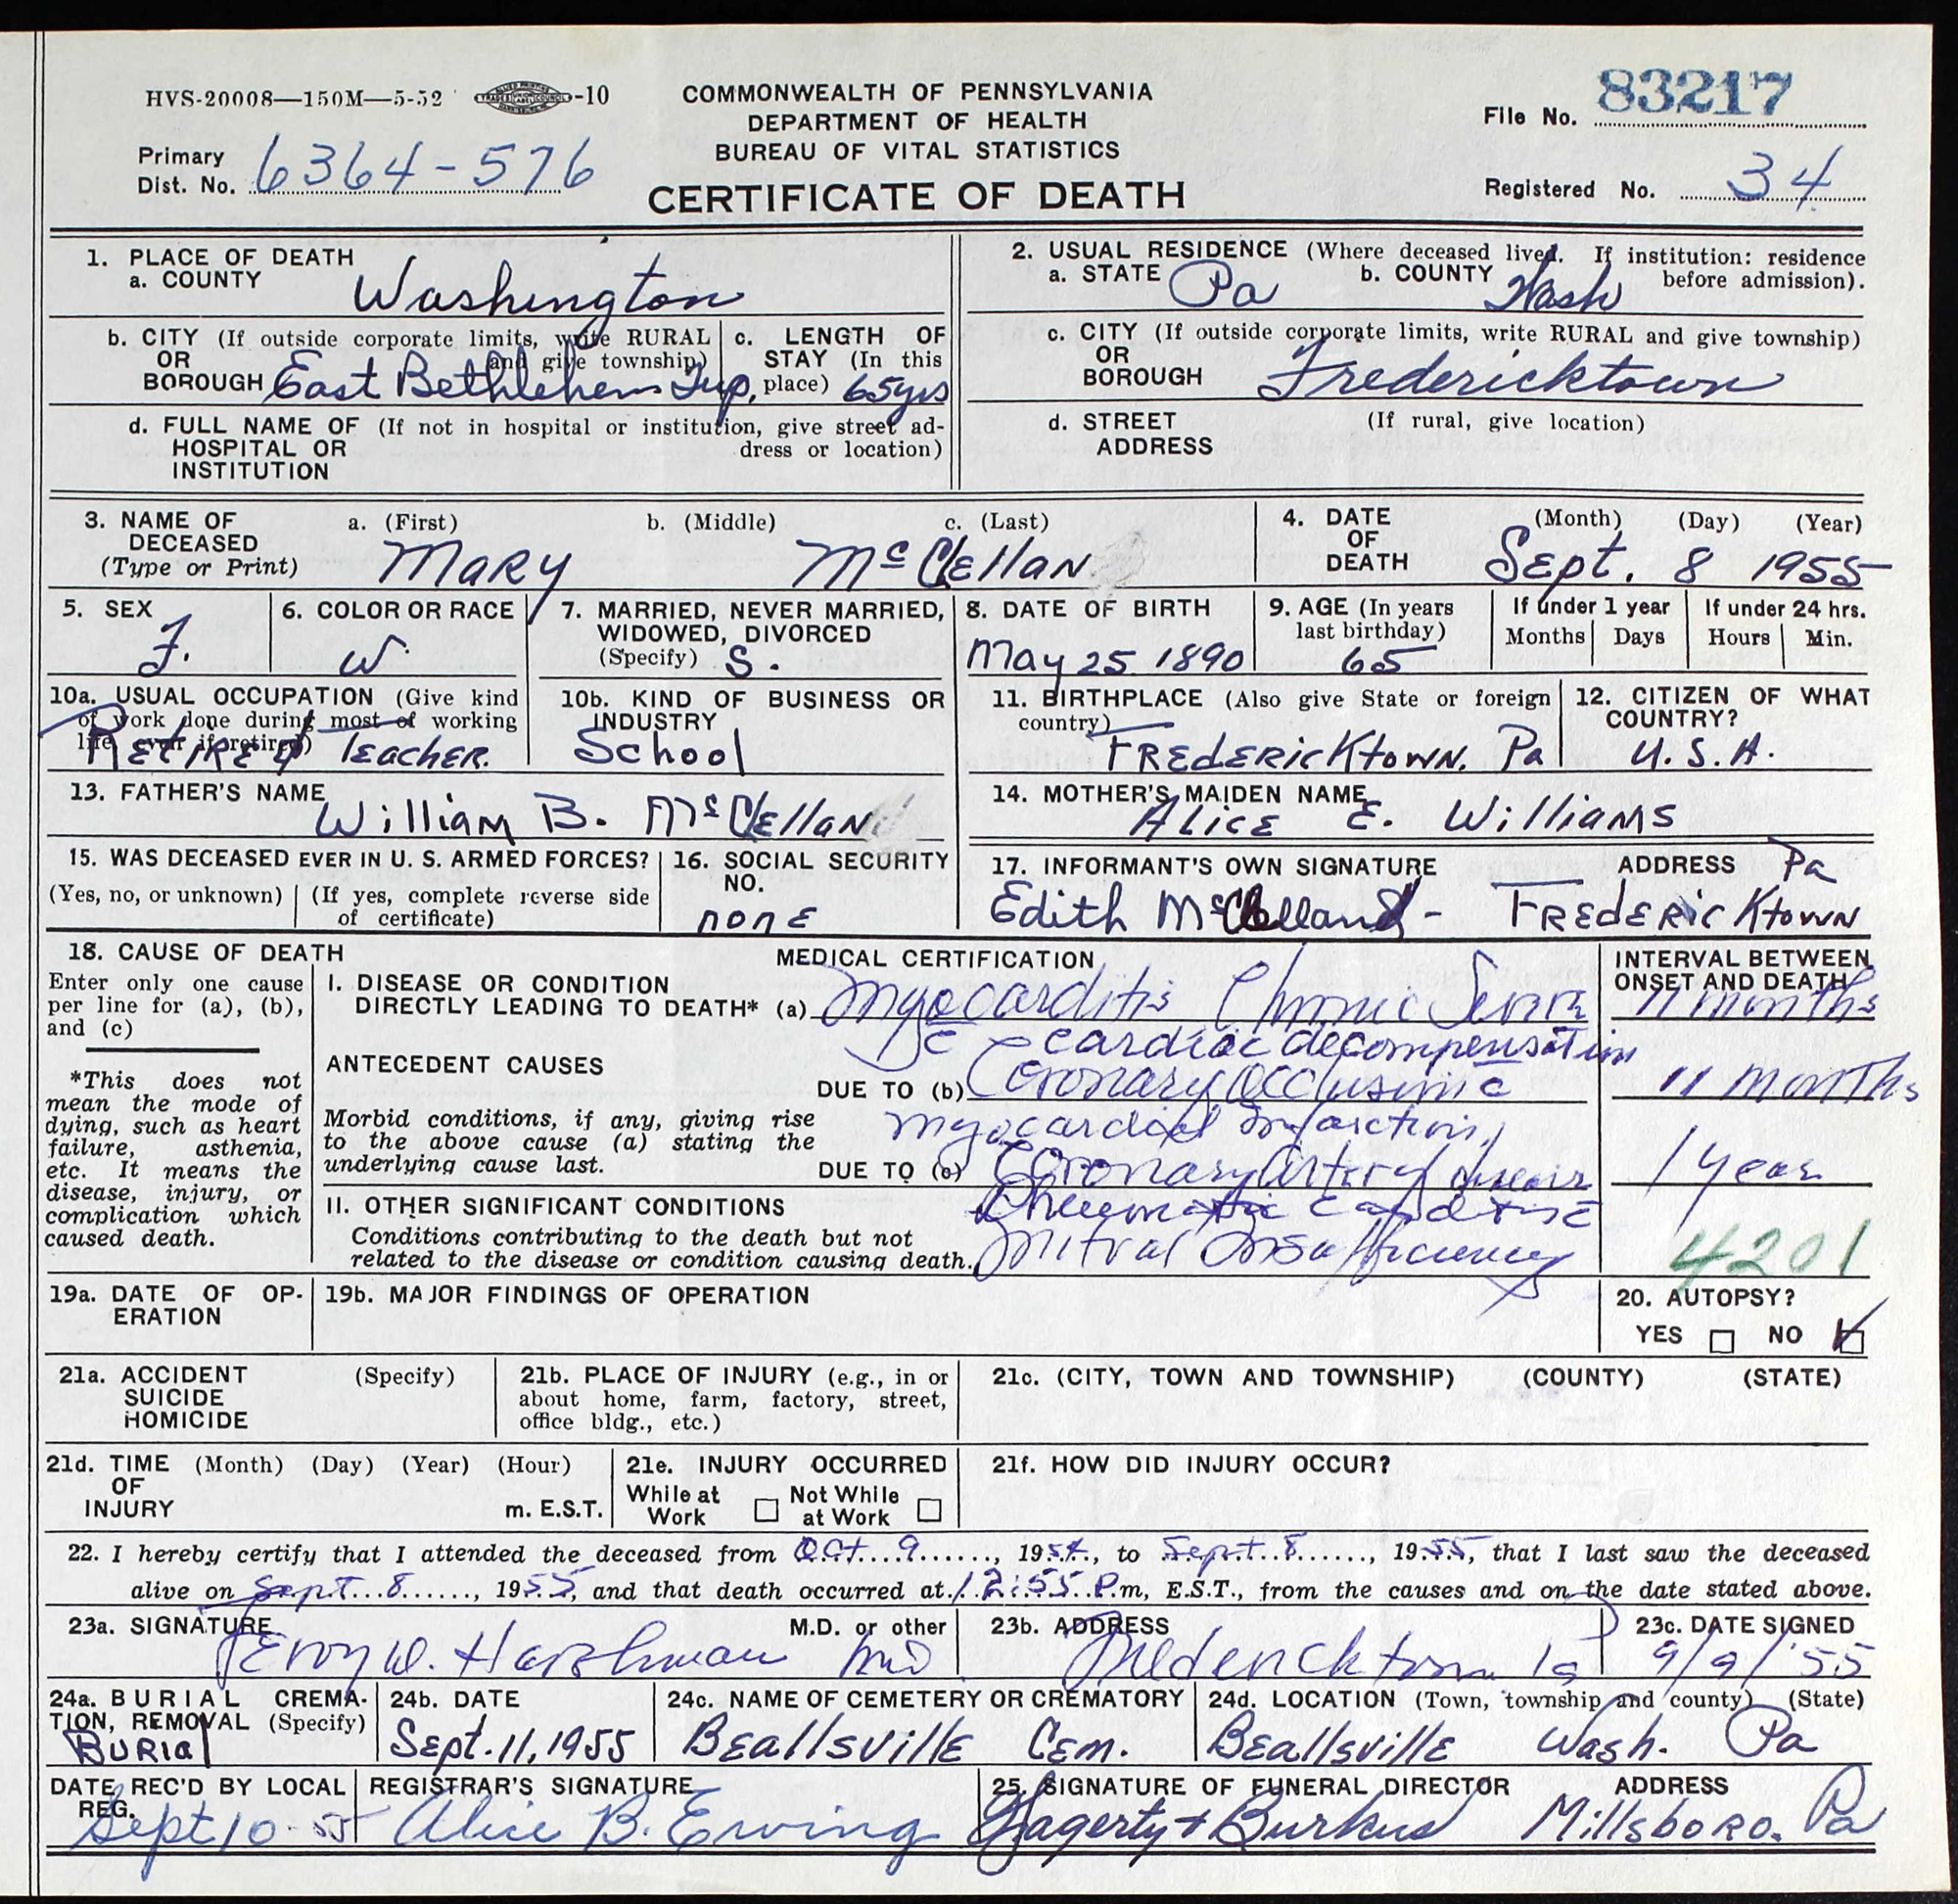 HVS-20008—150M—5-52 -10
COMMONWEALTH OF PENNSYLVANIA
DEPARTMENT OF HEALTH
BUREAU OF VITAL STATISTICS
CERTIFICATE OF DEATH
File No. 83217
Primary
Dist. No. 6364-576
Registered No. 34
1. PLACE OF DEATH
a. COUNTY Washington
2. USUAL RESIDENCE (Where deceased lived. If institution: residence
a. STATE Pa b. COUNTY Wash before admission).
b. CITY (If outside corporate limits, write RURAL
OR and give township)
BOROUGH East Bethlehem Twp.
c. LENGTH OF
STAY (In this
place) 65yrs
c. CITY (If outside corporate limits, write RURAL and give township)
OR
BOROUGH Fredericktown
d. FULL NAME OF (If not in hospital or institution, give street ad-
HOSPITAL OR dress or location)
INSTITUTION
d. STREET (If rural, give location)
ADDRESS
3. NAME OF a. (First) b. (Middle) c. (Last)
DECEASED
(Type or Print) MARY McClellan
4. DATE (Month) (Day) (Year)
OF
DEATH Sept. 8 1955
5. SEX
F.
6. COLOR OR RACE
W.
7. MARRIED, NEVER MARRIED,
WIDOWED, DIVORCED
(Specify) S.
8. DATE OF BIRTH
May 25 1890
9. AGE (In years
last birthday)
65
If under 1 year
Months Days
If under 24 hrs.
Hours Min.
10a. USUAL OCCUPATION (Give kind
of work done during most of working
life, even if retired)
Retired Teacher.
10b. KIND OF BUSINESS OR
INDUSTRY
School
11. BIRTHPLACE (Also give State or foreign
country)
Fredericktown. Pa
12. CITIZEN OF WHAT
COUNTRY?
U.S.A.
13. FATHER'S NAME
William B. McClellan
14. MOTHER'S MAIDEN NAME
Alice E. Williams
15. WAS DECEASED EVER IN U. S. ARMED FORCES?
(Yes, no, or unknown) (If yes, complete reverse side
of certificate)
16. SOCIAL SECURITY
NO.
none
17. INFORMANT'S OWN SIGNATURE ADDRESS Pa
Edith McClelland - Fredericktown
18. CAUSE OF DEATH
Enter only one cause
per line for (a), (b),
and (c)
*This does not
mean the mode of
dying, such as heart
failure, asthenia,
etc. It means the
disease, injury, or
complication which
caused death.
MEDICAL CERTIFICATION
I. DISEASE OR CONDITION
DIRECTLY LEADING TO DEATH* (a) Myocarditis Chronic Severe
c̄ cardiac decompensation
ANTECEDENT CAUSES
DUE TO (b) Coronary Occlusion c̄
Morbid conditions, if any, giving rise
to the above cause (a) stating the
underlying cause last.
myocardial Infarction,
DUE TO (c) Coronary Artery disease
II. OTHER SIGNIFICANT CONDITIONS
Conditions contributing to the death but not
related to the disease or condition causing death.
Rheumatic Carditis c̄
Mitral Insufficiency
INTERVAL BETWEEN
ONSET AND DEATH
11 months
11 months
1 year
4201
19a. DATE OF OP-
ERATION
19b. MAJOR FINDINGS OF OPERATION
20. AUTOPSY?
YES NO
21a. ACCIDENT (Specify)
SUICIDE
HOMICIDE
21b. PLACE OF INJURY (e.g., in or
about home, farm, factory, street,
office bldg., etc.)
21c. (CITY, TOWN AND TOWNSHIP) (COUNTY) (STATE)
21d. TIME (Month) (Day) (Year) (Hour)
OF
INJURY m. E.S.T.
21e. INJURY OCCURRED
While at Not While
Work at Work
21f. HOW DID INJURY OCCUR?
22. I hereby certify that I attended the deceased from Oct 9, 1954, to Sept 8, 1955, that I last saw the deceased
alive on Sept 8, 1955, and that death occurred at 12:55 P.m, E.S.T., from the causes and on the date stated above.
23a. SIGNATURE M.D. or other
Leroy W. Harshman MD
23b. ADDRESS
Fredericktown Pa
23c. DATE SIGNED
9/9/'55
24a. BURIAL CREMA-
TION, REMOVAL (Specify)
Burial
24b. DATE
Sept. 11, 1955
24c. NAME OF CEMETERY OR CREMATORY
Beallsville Cem.
24d. LOCATION (Town, township and county) (State)
Beallsville Wash. Pa
DATE REC'D BY LOCAL
REG.
Sept 10-55
REGISTRAR'S SIGNATURE
Alice B. Ewing
25. SIGNATURE OF FUNERAL DIRECTOR ADDRESS
Hagerty + Burkus Millsboro. Pa